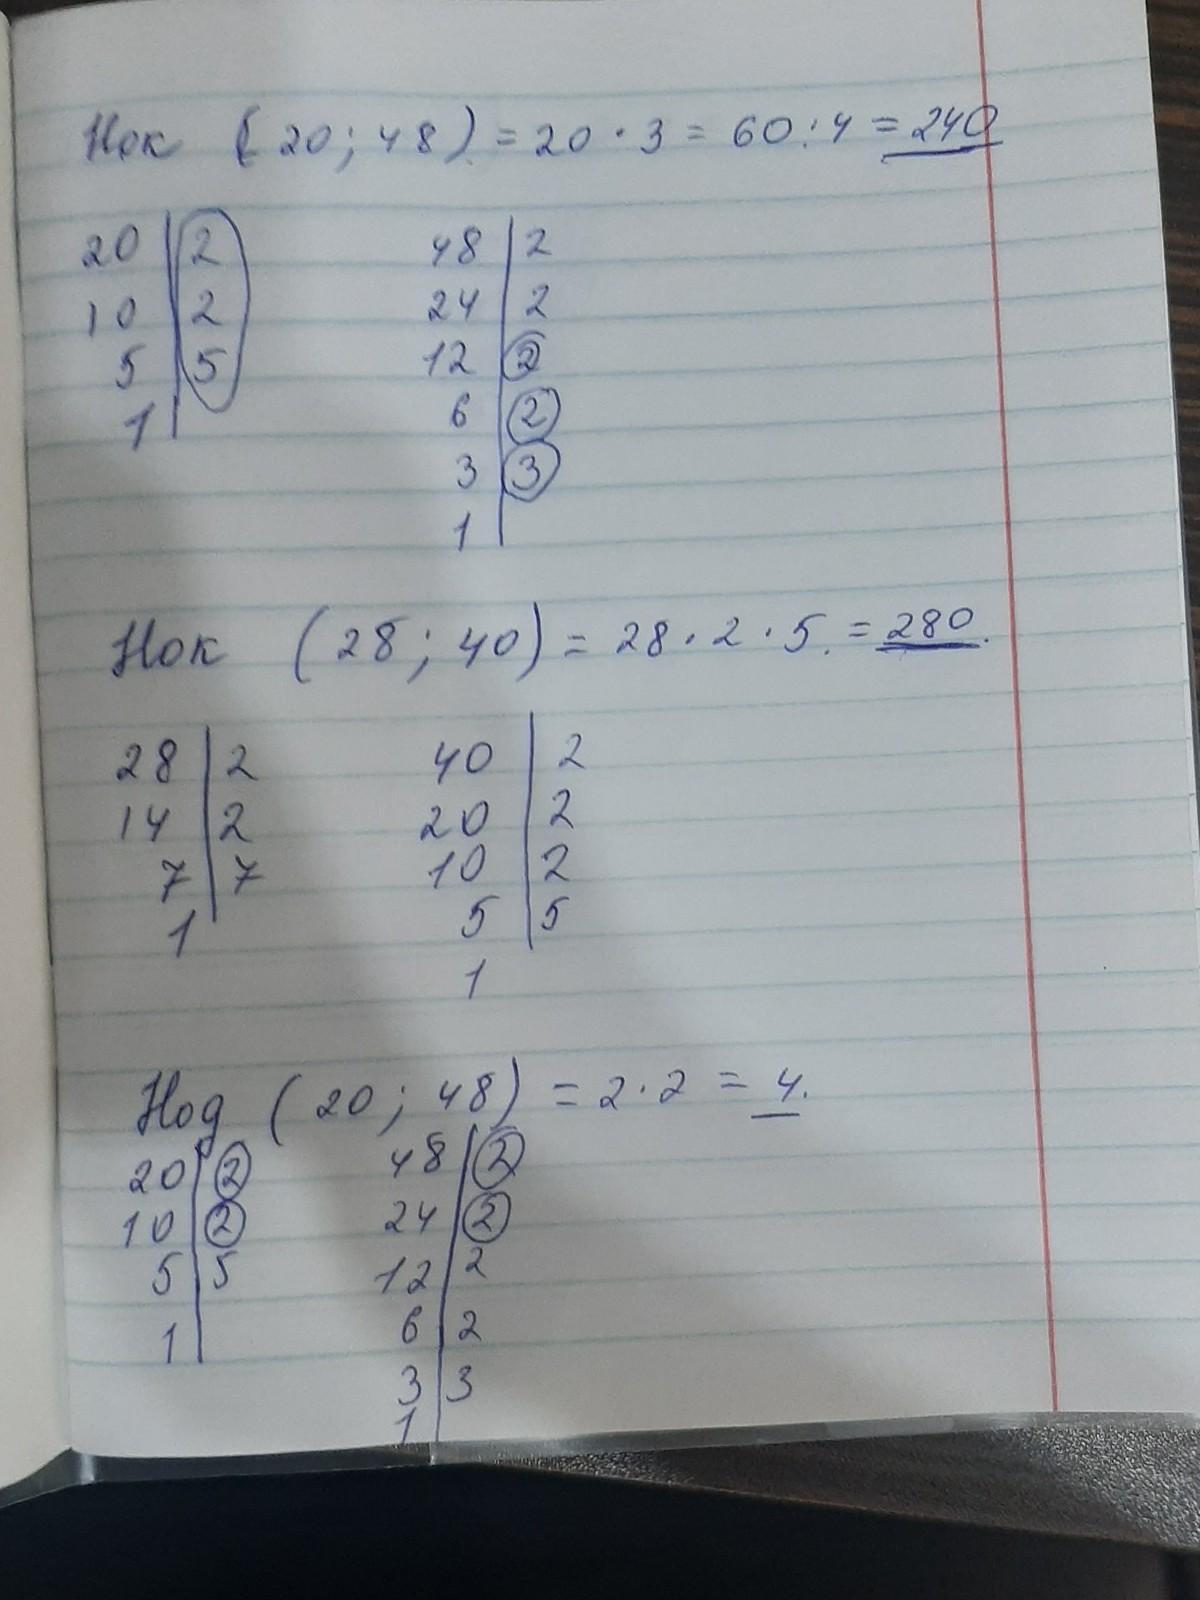 Нок (20; 48) = 20 · 3 = 60 : 4 = 240
20 | 2 48 | 2
10 | 2 24 | 2
5 | 5 12 | 2
1 | 6 | 2
3 | 3
1 |
Нок (28; 40) = 28 · 2 · 5. = 280.
28 | 2 40 | 2
14 | 2 20 | 2
7 | 7 10 | 2
1 5 | 5
1
Нод (20; 48) = 2 · 2 = 4.
20 | 2 48 | 2
10 | 2 24 | 2
5 | 5 12 | 2
1 | 6 | 2
3 | 3
1 |